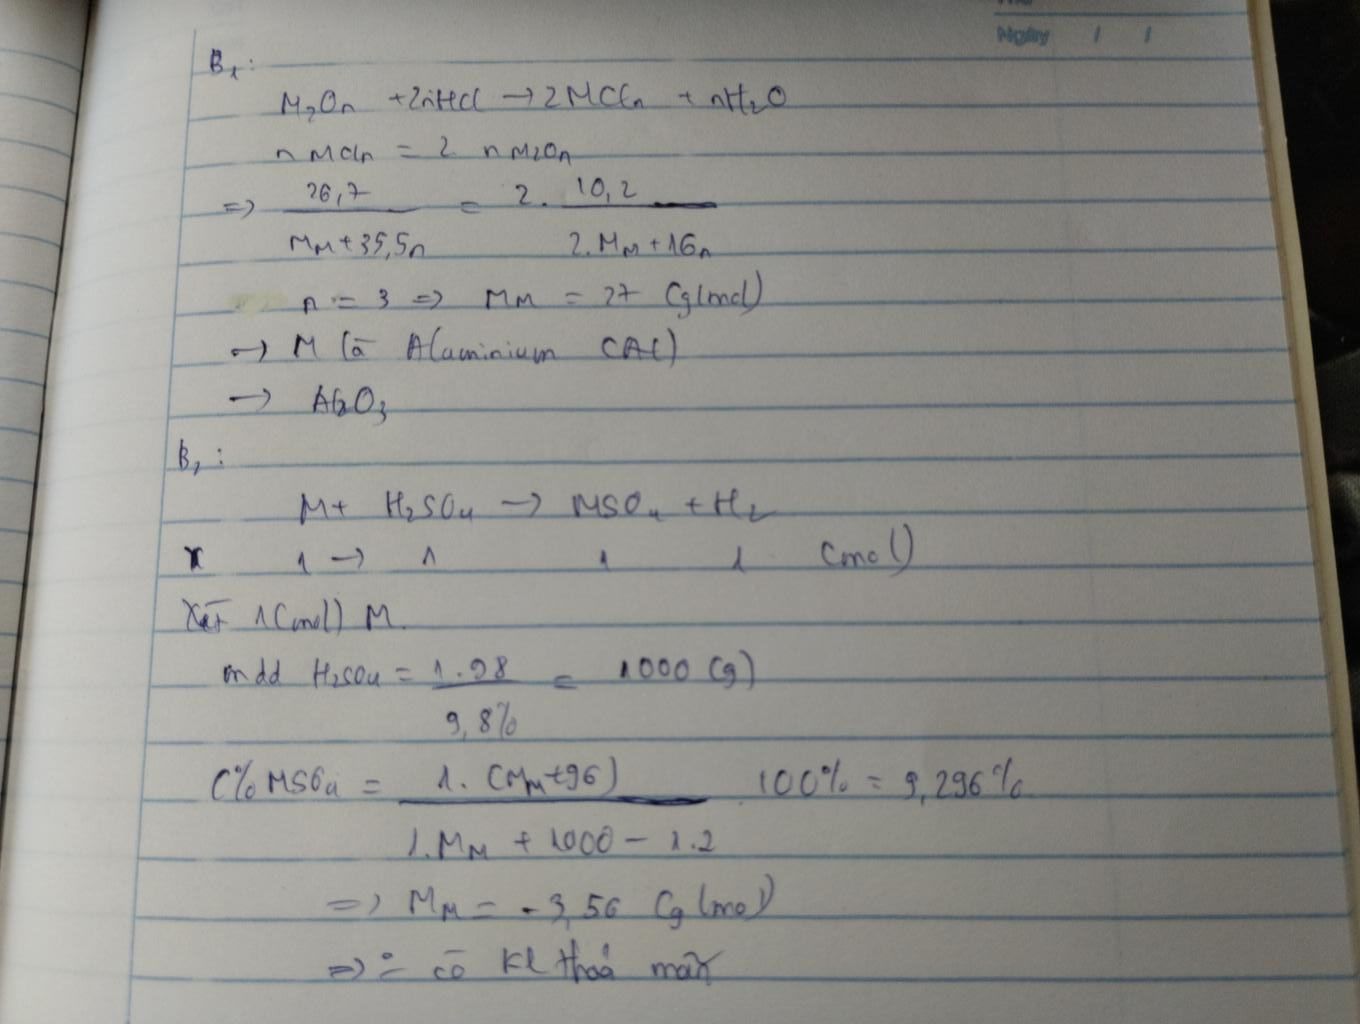 Ngày / /
B₁:
M₂Oₙ + 2nHCl → 2MClₙ + nH₂O
n MClₙ = 2 n M₂Oₙ
=> 26,7 / (M_M + 35,5n) = 2. 10,2 / (2.M_M + 16n)
n = 3 => M_M = 27 (g/mol)
→ M là Aluminium (Al)
→ Al₂O₃
B₂:
M + H₂SO₄ → MSO₄ + H₂
1 → 1 1 1 (mol)
Xét 1 (mol) M.
mdd H₂SO₄ = 1.98 / 9,8% = 1000 (g)
C% MSO₄ = 1.(M_M+96) / (1.M_M + 1000 - 1.2) 100% = 9,296%
=> M_M = -3,56 (g/mol)
=> có Kl thoả mãn